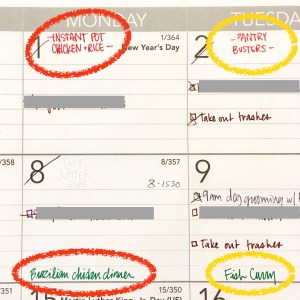 MONDAY
TUESD
1
1/364
New Year's Day
-INSTANT POT
CHICKEN + RICE-
2
-PANTRY
BUSTERS-
Take out trashes
/358
8
8/357
8-1530
9
9am dog grooming w/
Take out trashes
Brazilian chicken dinner
Fish Curry
/351
15
15/350
Martin Luther King, Jr. Day (US)
16